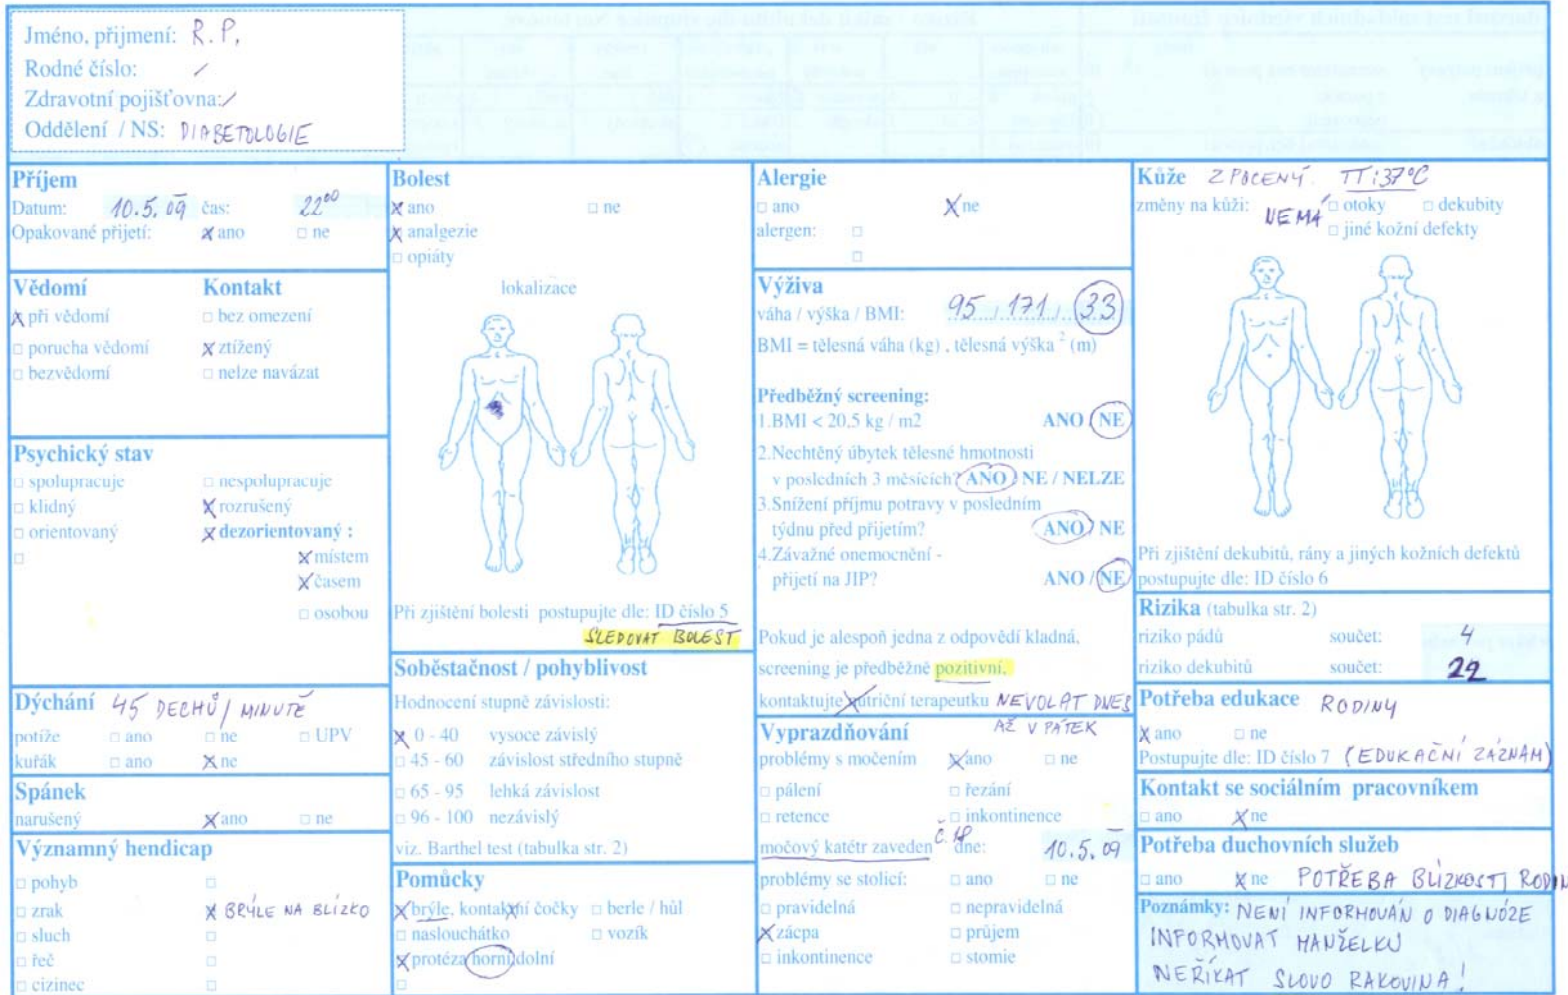 Jméno, přijmení: R.P.
Rodné číslo: /
Zdravotní pojišťovna: /
Oddělení / NS: DIABETOLOGIE
Příjem
Datum: 10.5.09 čas: 22⁰⁰
Opakované přijetí: ano ne
Vědomí Kontakt
při vědomí bez omezení
porucha vědomí ztížený
bezvědomí nelze navázat
Psychický stav
spolupracuje nespolupracuje
klidný rozrušený
orientovaný dezorientovaný :
místem
časem
osobou
Dýchání 45 DECHŮ / MINUTĚ
potíže ano ne UPV
kuřák ano ne
Spánek
narušený ano ne
Významný hendicap
pohyb
zrak BRÝLE NA BLÍZKO
sluch
řeč
cizinec
Bolest
ano ne
analgezie
opiáty
lokalizace
Při zjištění bolesti postupujte dle: ID číslo 5
SLEDOVAT BOLEST
Soběstačnost / pohyblivost
Hodnocení stupně závislosti:
0 - 40 vysoce závislý
45 - 60 závislost středního stupně
65 - 95 lehká závislost
96 - 100 nezávislý
viz. Barthel test (tabulka str. 2)
Pomůcky
brýle, kontaktní čočky berle / hůl
naslouchátko vozík
protéza horní, dolní
Alergie
ano ne
alergen:
Výživa
váha / výška / BMI: 95 / 171 / 33
BMI = tělesná váha (kg) , tělesná výška ² (m)
Předběžný screening:
1.BMI < 20,5 kg / m2 ANO / NE
2.Nechtěný úbytek tělesné hmotnosti
v posledních 3 měsících? ANO / NE / NELZE
3.Snížení příjmu potravy v posledním
týdnu před přijetím? ANO / NE
4.Závažné onemocnění -
přijetí na JIP? ANO / NE
Pokud je alespoň jedna z odpovědí kladná,
screening je předběžně pozitivní,
kontaktujte nutriční terapeutku NEVOLAT DNES
AŽ V PÁTEK
Vyprazdňování
problémy s močením ano ne
pálení řezání
retence inkontinence
močový katétr zaveden Č. 18 dne: 10.5.09
problémy se stolicí: ano ne
pravidelná nepravidelná
zácpa průjem
inkontinence stomie
Kůže ZPOCENÝ. TT:37°C
změny na kůži: NEMÁ otoky dekubity
jiné kožní defekty
Při zjištění dekubitů, rány a jiných kožních defektů
postupujte dle: ID číslo 6
Rizika (tabulka str. 2)
riziko pádů součet: 4
riziko dekubitů součet: 22
Potřeba edukace RODINY
ano ne
Postupujte dle: ID číslo 7 (EDUKAČNÍ ZÁZNAM)
Kontakt se sociálním pracovníkem
ano ne
Potřeba duchovních služeb
ano ne POTŘEBA BLÍZKOSTI RODIN
Poznámky: NENÍ INFORMOVÁN O DIAGNÓZE
INFORMOVAT MANŽELKU
NEŘÍKAT SLOVO RAKOVINA!